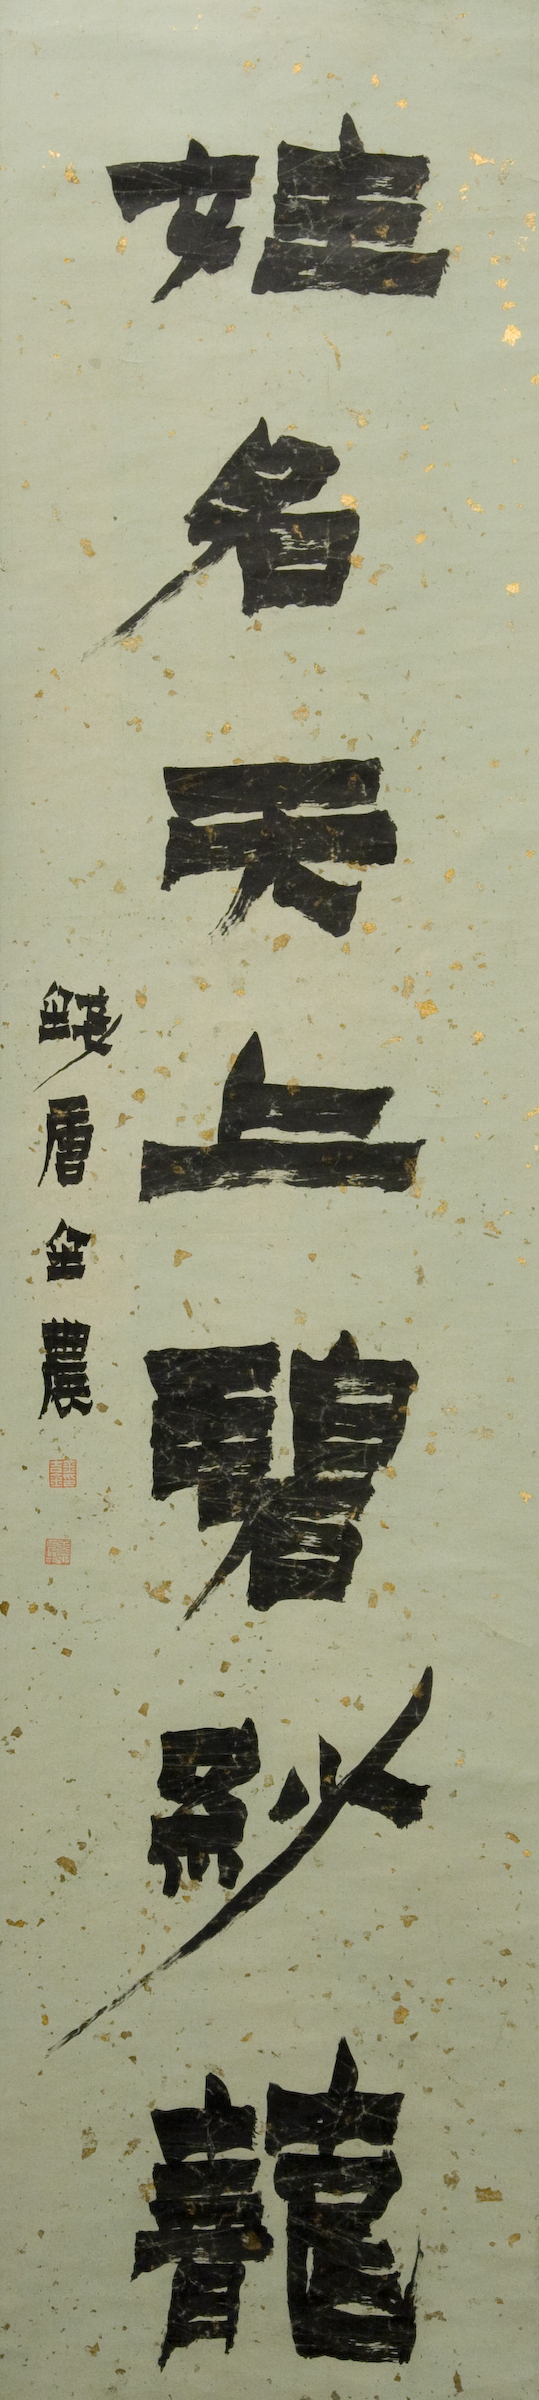 姓名天上碧紗龍
錢唐金農